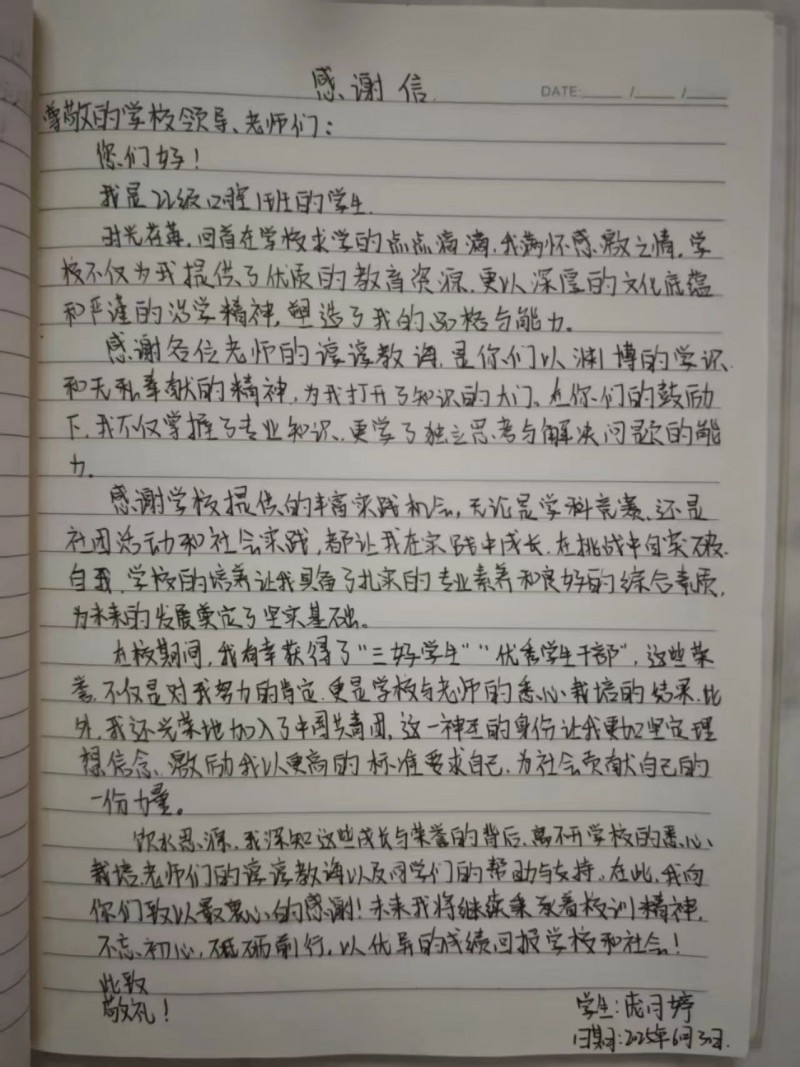 感谢信
DATE: / /
尊敬的学校领导、老师们：
您们好！
我是22级口腔1班的学生.
时光荏苒，回首在学校求学的点点滴滴，我满怀感激之情，学
校不仅为我提供了优质的教育资源，更以深厚的文化底蕴
和严谨的治学精神，塑造了我的品格与能力。
感谢各位老师的谆谆教诲，是你们以渊博的学识
和无私奉献的精神，为我打开了知识的大门。在你们的鼓励
下，我不仅掌握了专业知识，更学了独立思考与解决问题的能
力。
感谢学校提供的丰富实践机会，无论是学科竞赛、还是
社团活动和社会实践，都让我在实践中成长，在挑战中突破
自我，学校的培养让我具备了扎实的专业素养和良好的综合素质，
为未来的发展奠定了坚实基础。
在校期间，我有幸获得了“三好学生”“优秀学生干部”，这些荣
誉，不仅是对我努力的肯定，更是学校与老师的悉心栽培的结果，此
外，我还光荣地加入了中国共青团，这一神圣的身份让我更加坚定理
想信念、激励我以更高的标准要求自己，为社会贡献自己的
一份力量。
饮水思源，我深知这些成长与荣誉的背后，离不开学校的悉心
栽培老师们的谆谆教诲以及同学们的帮助与支持。在此，我向
你们致以最衷心的感谢！未来我将继续秉承着校训精神，
不忘初心，砥砺前行，以优异的成绩回报学校和社会！
此致
敬礼！
学生：庞月婷
日期：2025年6月30日.